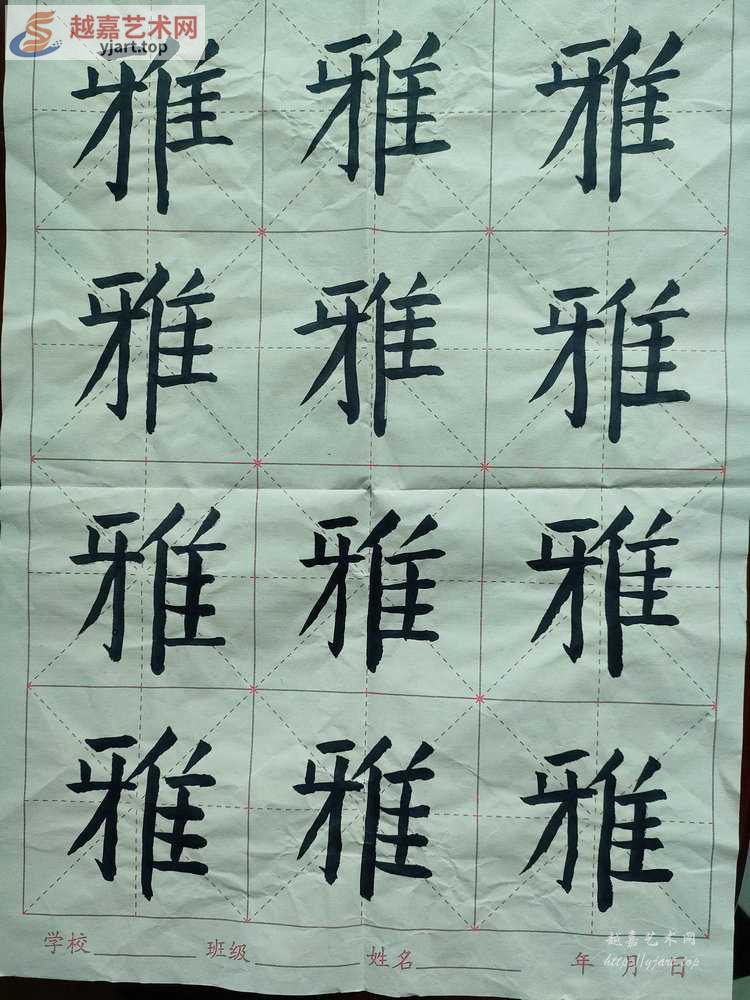 越嘉艺术网
yjart.top
雅 雅 雅
雅 雅 雅
雅 雅 雅
雅 雅 雅
学校 班级 姓名 年 月 日
越嘉艺术网
http://yjart.top